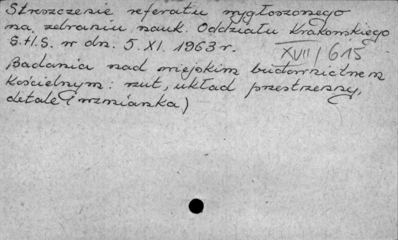 Streszczenie referatu wygłoszonego
na zebraniu nauk. Oddziału Krakowskiego
S.H.S. w dn. 5. XI. 1963 r.
XVII/615
Badania nad miejskim budownictwem
kościelnym: rzut, układ przestrzenny,
detale (wzmianka)